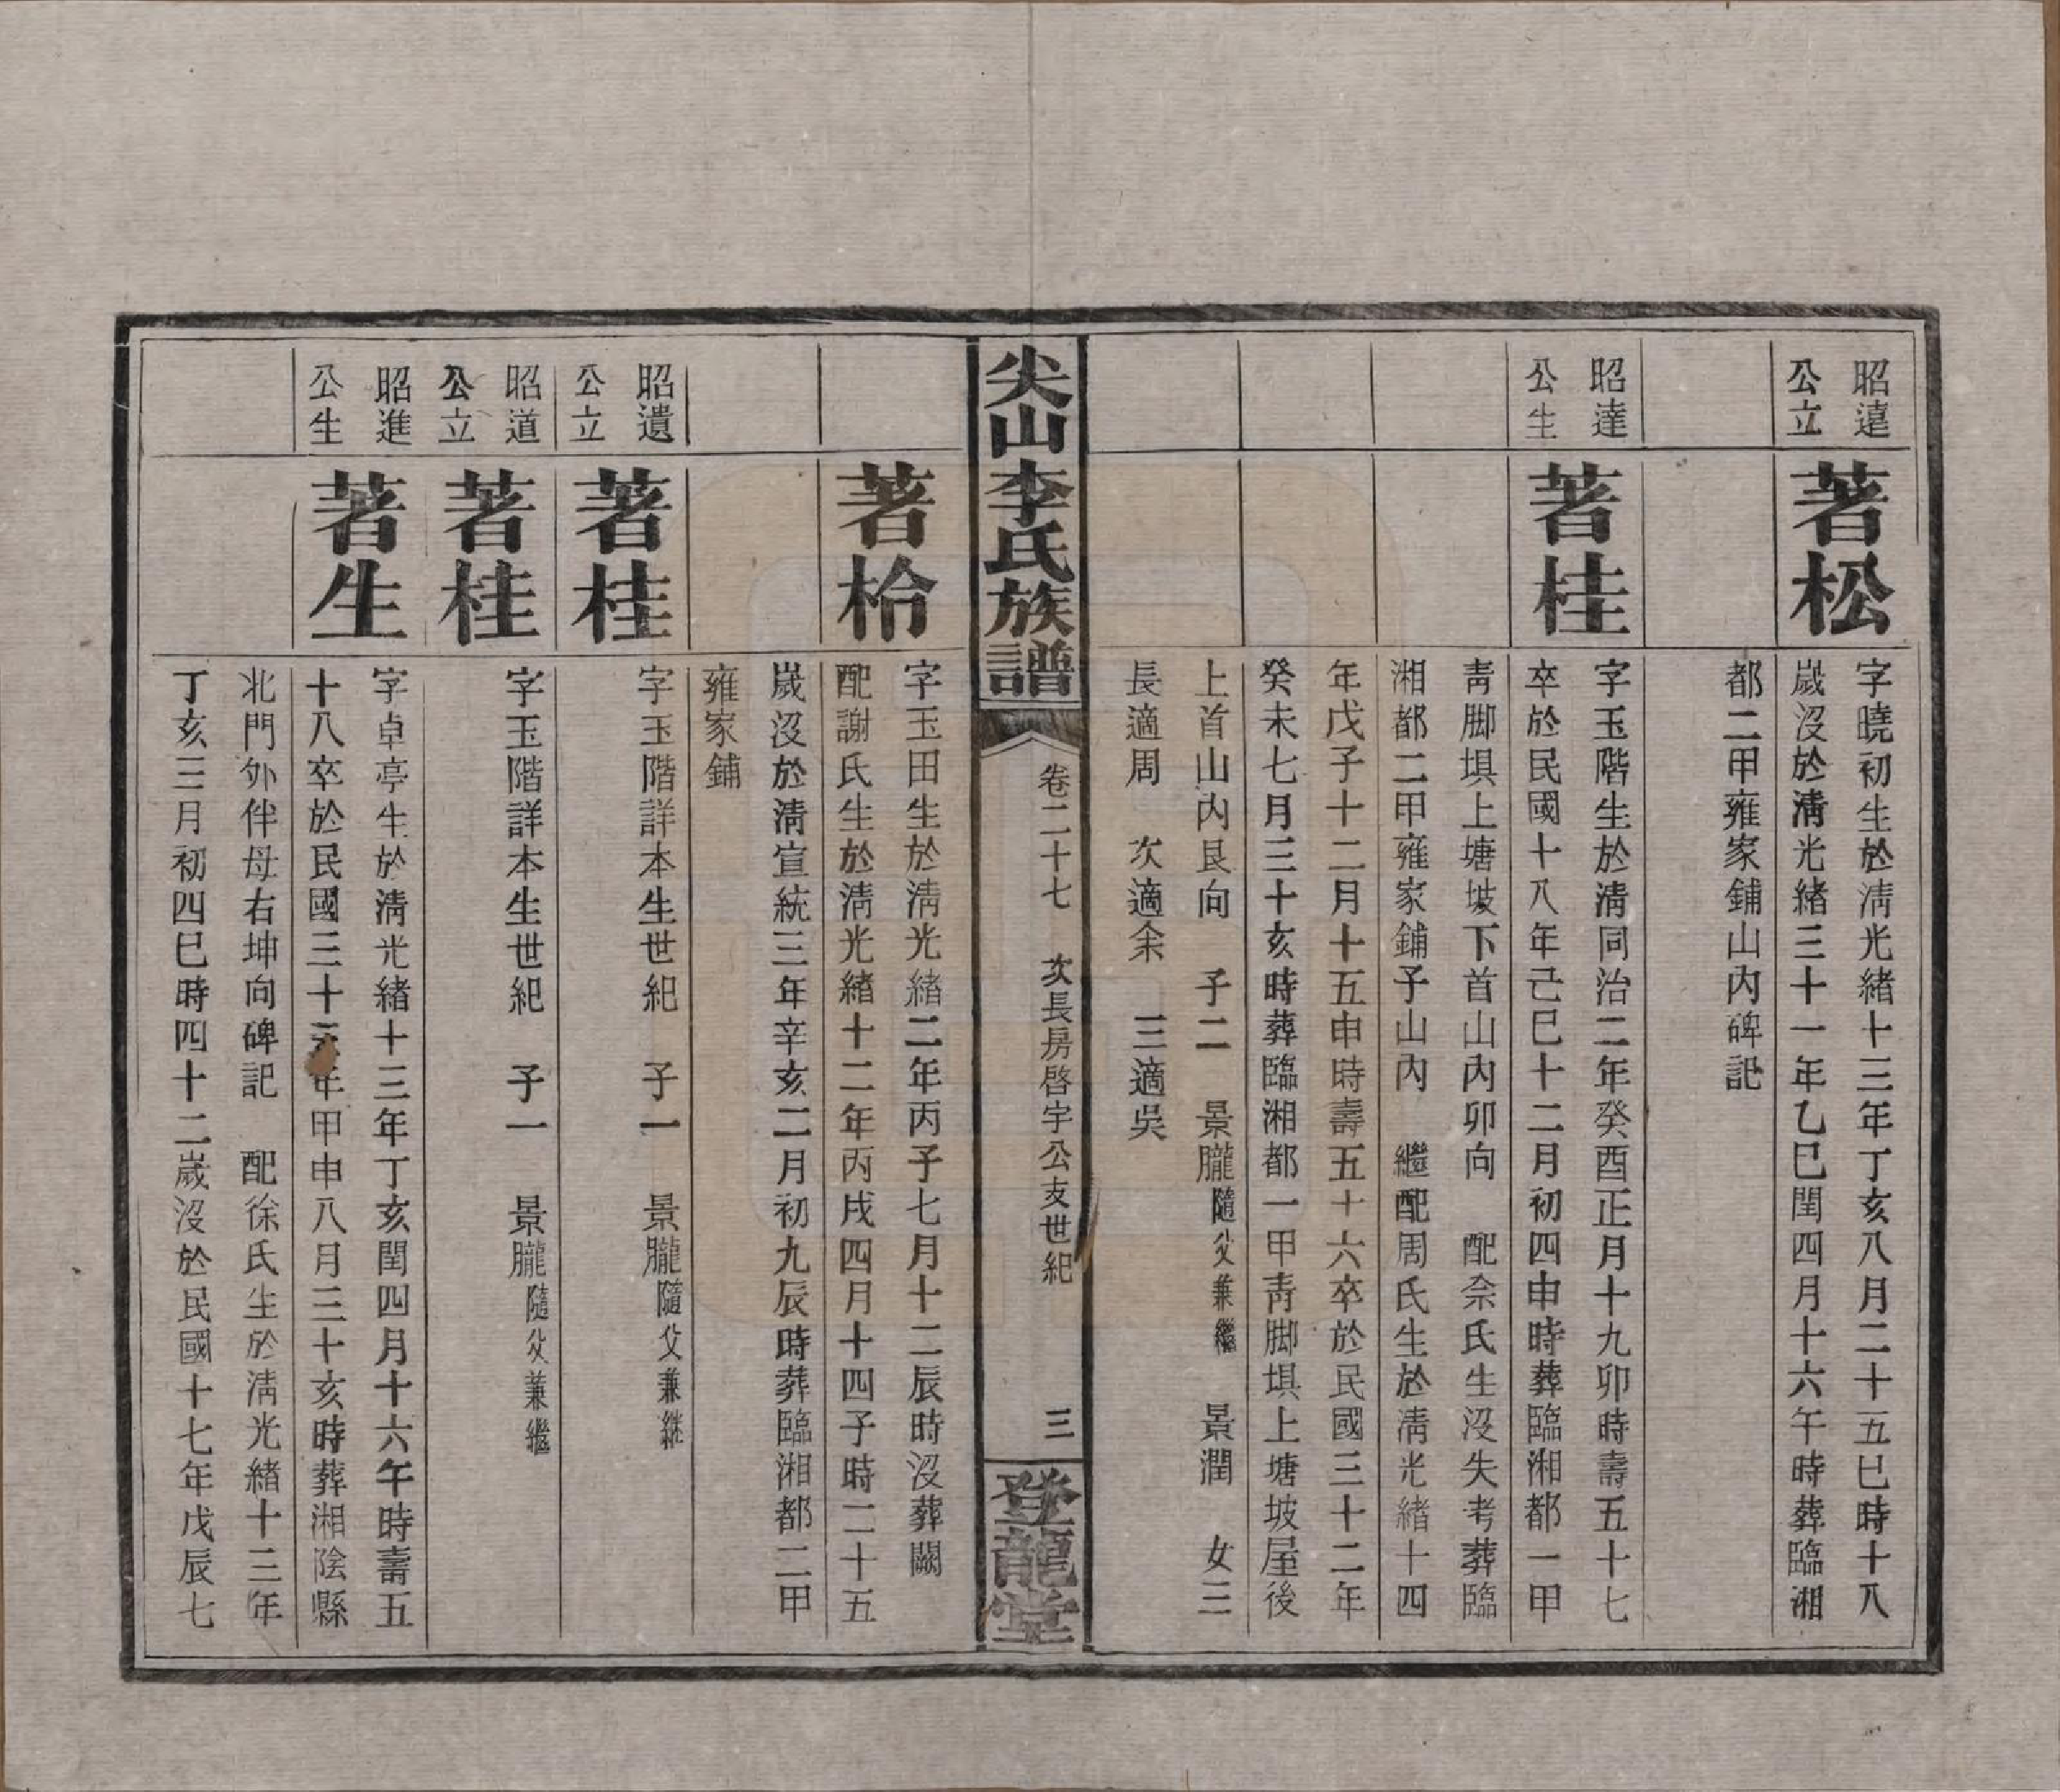 昭達
公立
著松
字曉初生於清光緒十三年丁亥八月二十五巳時十八
歲沒於清光緒三十一年乙巳閏四月十六午時葬臨湘
都二甲雍家鋪山內碑記
昭達
公生
著桂
字玉階生於清同治二年癸酉正月十九卯時壽五十七
卒於民國十八年己巳十二月初四申時葬臨湘都一甲
靑脚塅上塘坡下首山內卯向 配佘氏生沒失考葬臨
湘都二甲雍家鋪子山內 繼配周氏生於清光緒十四
年戊子十二月十五申時壽五十六卒於民國三十二年
癸未七月三十亥時葬臨湘都一甲靑脚塅上塘坡屋後
上首山內艮向 子二 景朧隨父兼繼 景潤 女三
長適周 次適余 三適吳
尖山李氏族譜
卷二十七 次長房啓宇公支世紀
三
登龍堂
著柃
字玉田生於清光緒二年丙子七月十二辰時沒葬闕
配謝氏生於清光緒十二年丙戌四月十四子時二十五
歲沒於清宣統三年辛亥二月初九辰時葬臨湘都二甲
雍家鋪
昭遺
公立
著桂
字玉階詳本生世紀 子一 景朧隨父兼継
昭道
公立
著桂
字玉階詳本生世紀 子一 景朧隨父兼繼
昭進
公生
著生
字卓亭生於清光緒十三年丁亥閏四月十六午時壽五
十八卒於民國三十三年甲申八月三十亥時葬湘陰縣
北門外伴母右坤向碑記 配徐氏生於清光緒十三年
丁亥三月初四巳時四十二歲沒於民國十七年戊辰七